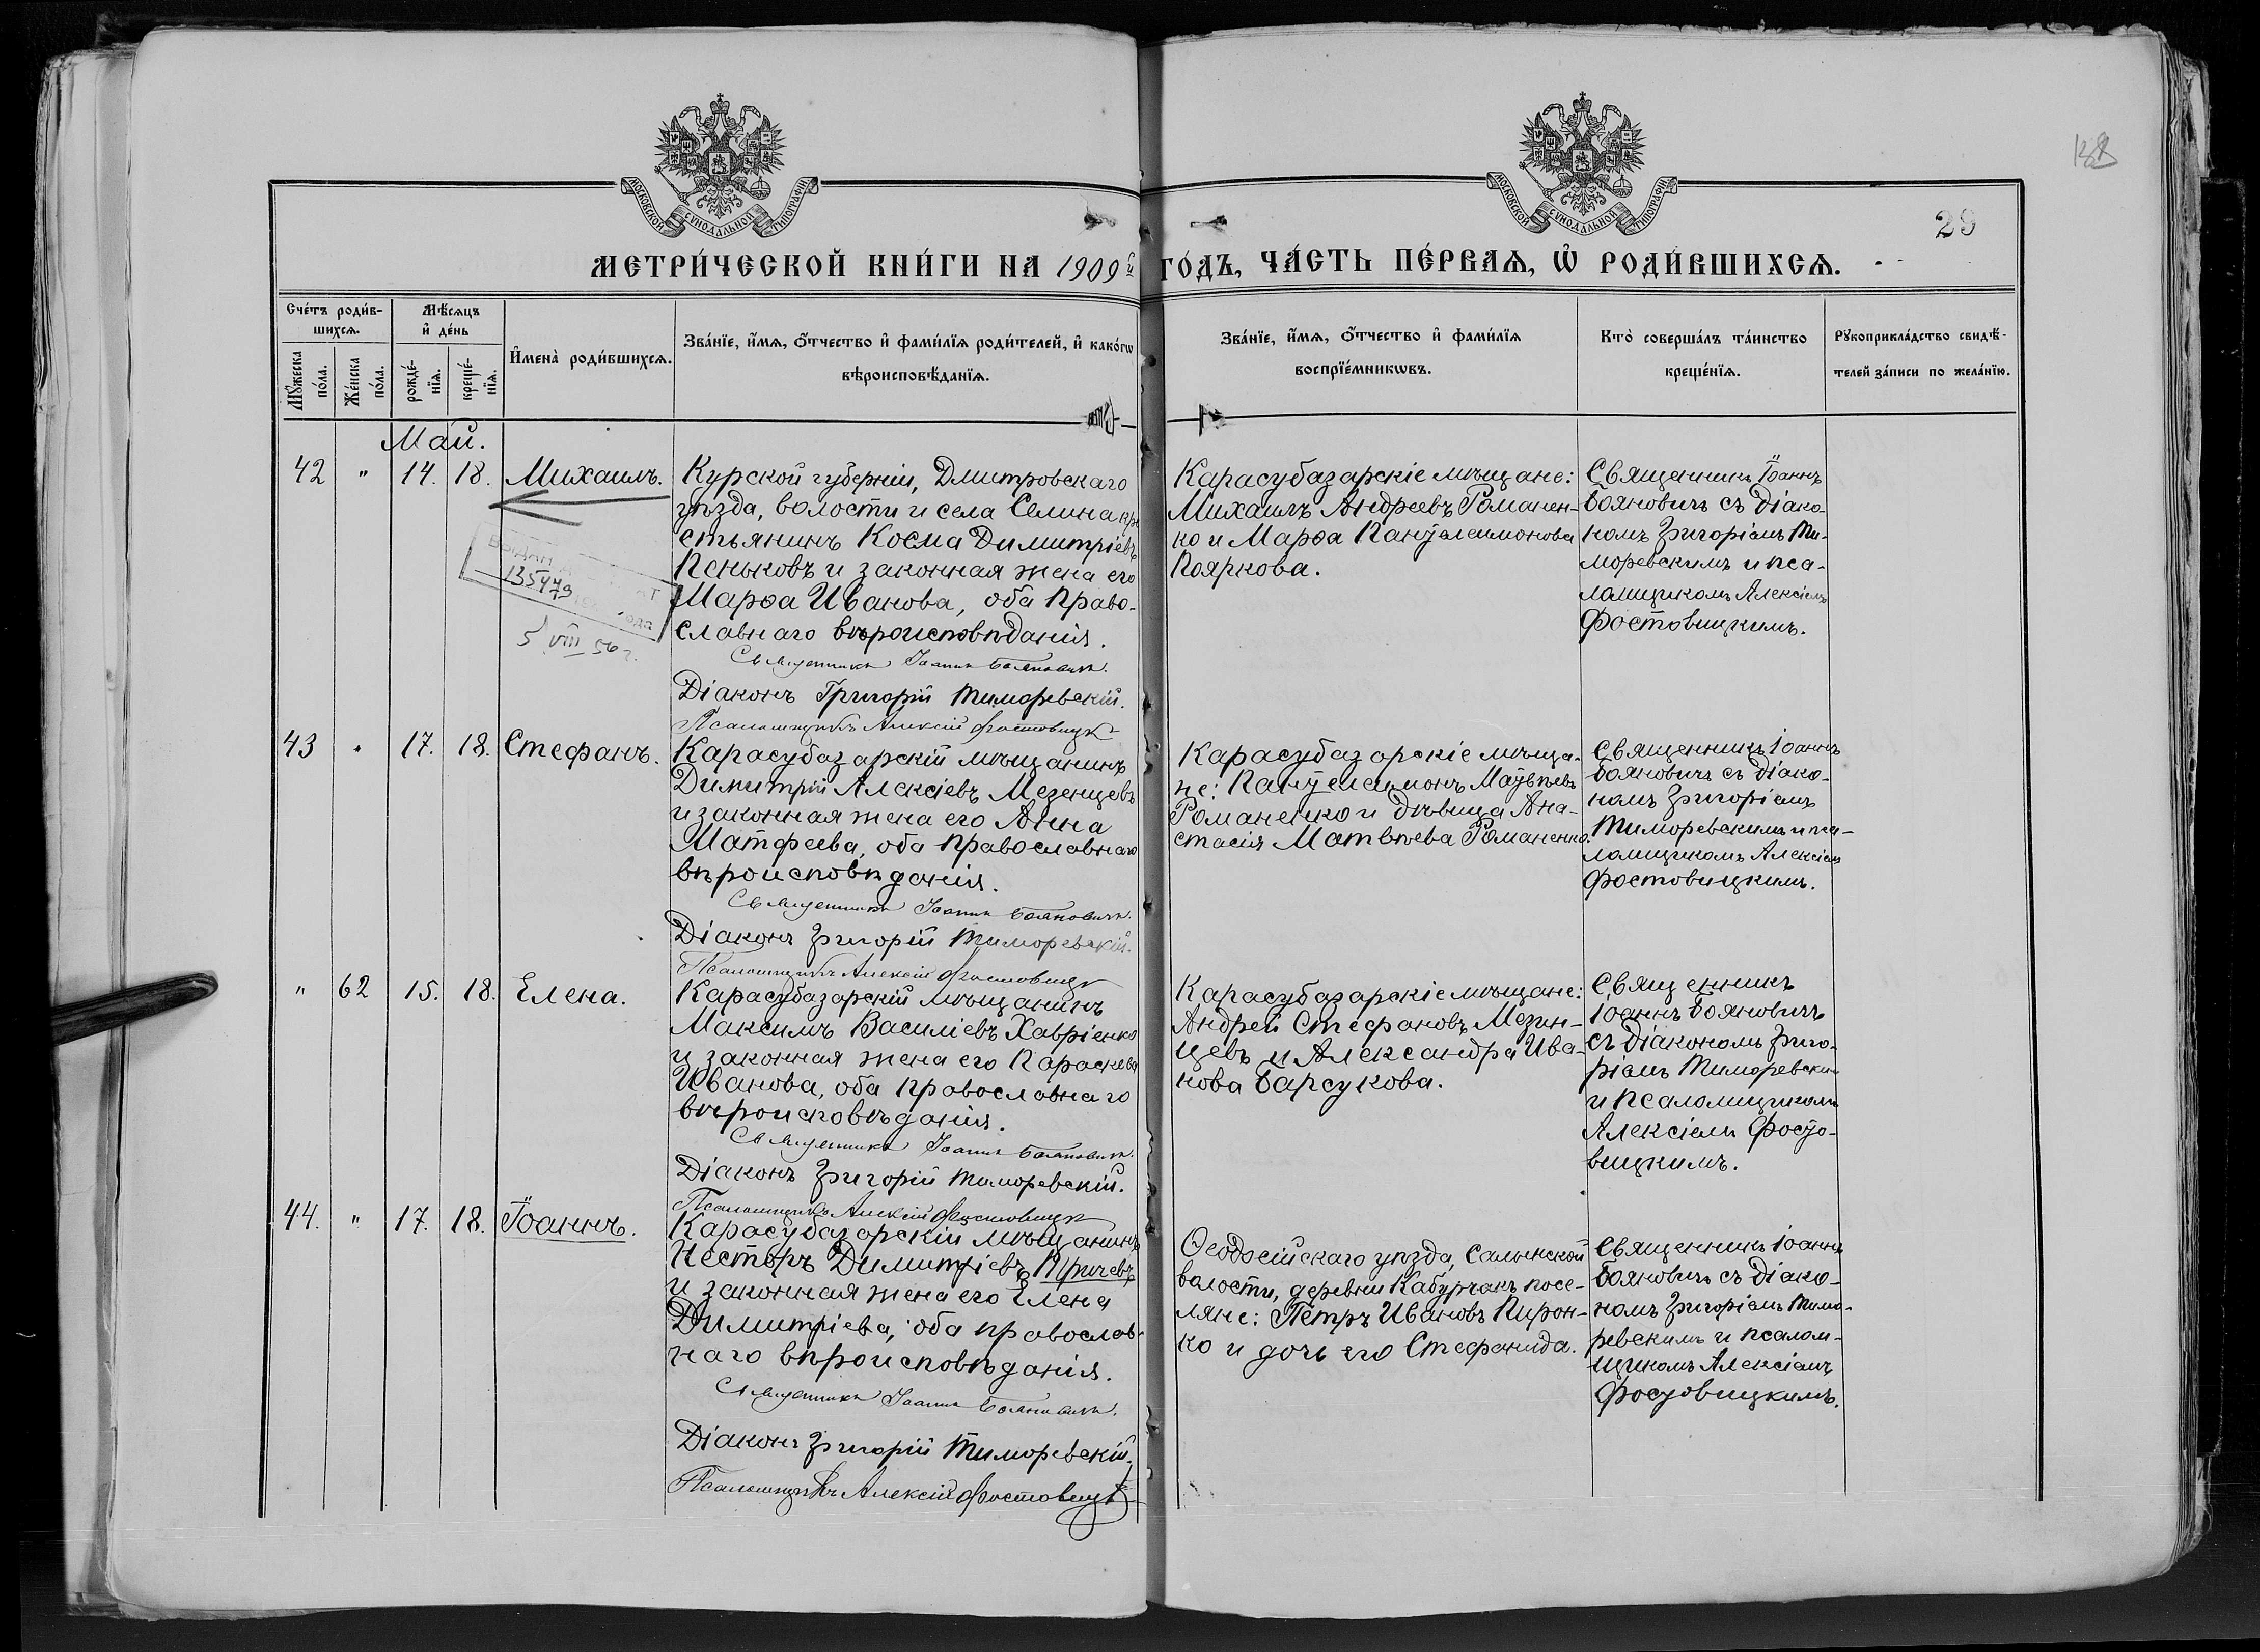 188
29
МОСКОВСКОЙ СѴНОДАЛЬНОЙ ТИПОГРАФІИ
МОСКОВСКОЙ СѴНОДАЛЬНОЙ ТИПОГРАФІИ
МЕТРИ́ЧЕСКОЙ КНИ́ГИ НА 1909й ГО́ДЪ, ЧА́СТЬ ПЕ́РВАѦ, Ѡ҆ РОДИ́ВШИХСѦ.
Сче́тъ роди́в-
шихсѧ.
Мꙋ́жеска
по́ла.
Же́нска
по́ла.
Мѣ́сѧцъ
и҆ де́нь
рожде́-
нїѧ.
креще́-
нїѧ.
И҆мена̀ роди́вшихсѧ.
Зва́нїе, и҆́мѧ, ѻ҆́тчество и҆ фами́лїѧ роди́телей, и҆ како́гѡ
вѣроисповѣ́данїѧ.
Зва́нїе, и҆́мѧ, ѻ҆́тчество и҆ фами́лїѧ
воспрїе́мникѡвъ.
Кто̀ соверша́лъ та́инство
креще́нїѧ.
Рꙋкоприкла́дство свидѣ́-
телей за́писи по жела́нїю.
Май.
42 " 14. 18. Михаилъ.
Курской губерніи, Дмитровскаго
уѣзда, волости и села Селина кре
стьянинъ Косма Димитріевъ
Пеньковъ и законная жена его
Марѳа Иванова, оба право-
славнаго вѣроисповѣданія.
Священникъ Іоаннъ Бояновичъ.
Діаконъ Григорій Тиморевскій.
Псаломщикъ Алексій Фостовицк
135473
5 VIII 56 г.
Карасубазарскіе мѣщане:
Михаилъ Андреевъ Романен-
ко и Марѳа Пантелеимонова
Пояркова.
Священникъ Іоаннъ
Бояновичъ съ діако-
номъ Григоріемъ Ти-
моревскимъ и пса-
ломщикомъ Алексіемъ
Фостовицкимъ.
43 " 17. 18. Стефанъ.
Карасубазарскій мѣщанинъ
Димитрій Алексіевъ Мезенцевъ
и законная жена его Анна
Матфеева, оба православнаго
вѣроисповѣданія.
Священникъ Іоаннъ Бояновичъ.
Діаконъ Григорій Тиморевскій.
Псаломщикъ Алексій Фостовицк
Карасубазарскіе мѣща-
не: Пантелеимонъ Матвѣевъ
Романенко и дѣвица Ана-
стасія Матвѣева Романенко.
Священникъ Іоаннъ
Бояновичъ съ діако-
номъ Григоріемъ
Тиморевскимъ и пса-
ломщикомъ Алексіемъ
Фостовицкимъ.
" 62 15. 18. Елена.
Карасубазарскій мѣщанинъ
Максимъ Василіевъ Хавріенко
и законная жена его Параскева
Иванова, оба православнаго
вѣроисповѣданія.
Священникъ Іоаннъ Бояновичъ.
Діаконъ Григорій Тиморевскій.
Псаломщикъ Алексій Фостовицк
Карасубазарскіе мѣщане:
Андрей Стефановъ Мезин-
цевъ и Александра Ива-
нова Барсукова.
Священникъ
Іоаннъ Бояновичъ
съ діакономъ Григо-
ріемъ Тиморевским
и псаломщикомъ
Алексіемъ Фосто-
вицкимъ.
44. " 17. 18. Іоаннъ.
Карасубазарскій мѣщанинъ
Несторъ Димитріевъ Причевъ
и законная жена его Елена
Димитріева, оба православ-
наго вѣроисповѣданія.
Священникъ Іоаннъ Бояновичъ.
Діаконъ Григорій Тиморевскій.
Псаломщикъ Алексій Фостовицк
Ѳеодосійскаго уѣзда, Салынской
волости, деревни Кабурчакъ посе-
ляне: Петръ Ивановъ Пирон-
ко и дочь его Стефанида.
Священникъ Іоаннъ
Бояновичъ съ діако-
номъ Григоріемъ Тимо-
ревскимъ и псалом-
щикомъ Алексіемъ
Фостовицкимъ.